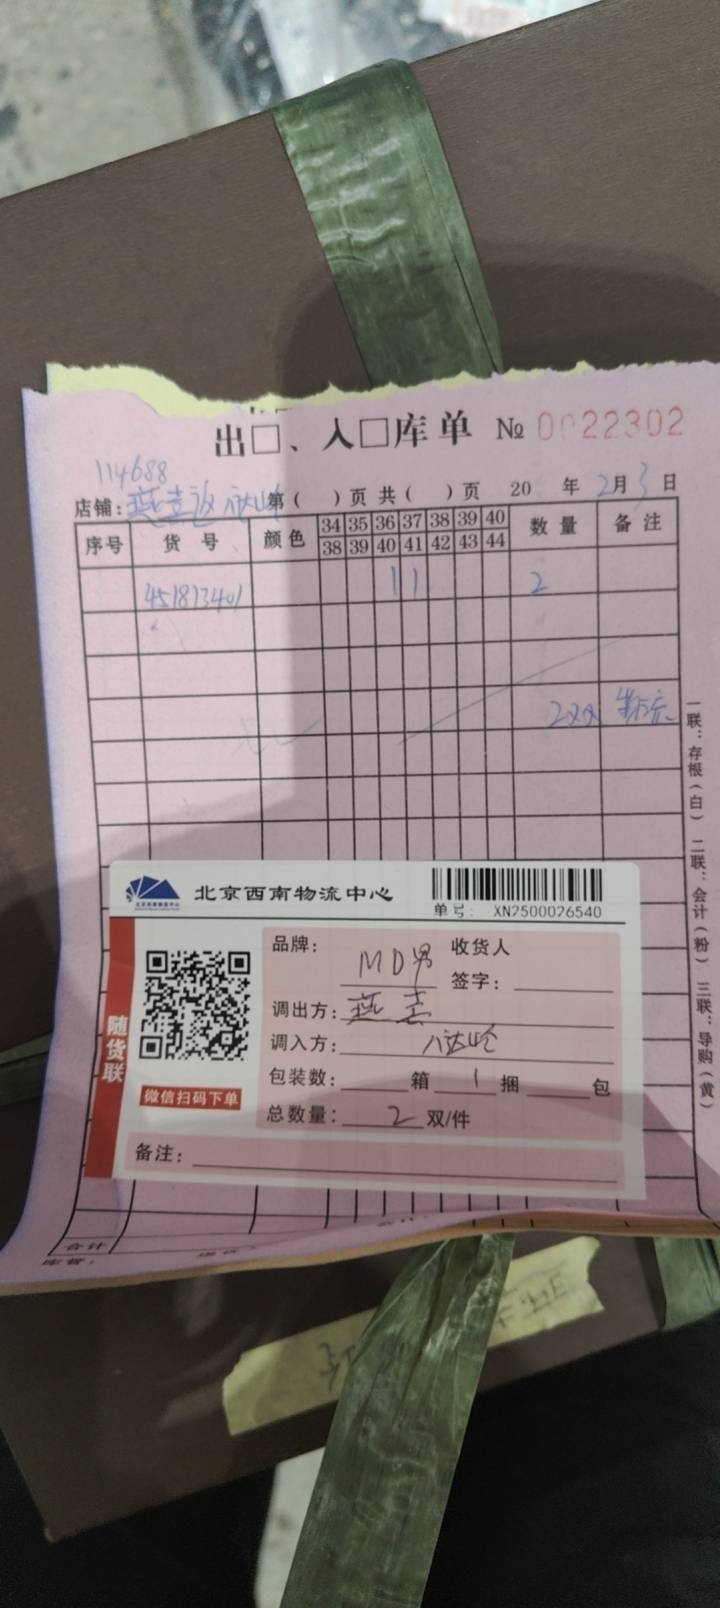 出□、入□库单 № 0022302
114688
店铺：燕莎返八达岭 第（ ）页 共（ ）页 20 年 2月 3 日
序号 货号 颜色 34 35 36 37 38 39 40 数量 备注
38 39 40 41 42 43 44
451873401 1 1 2
2双
一联：存根（白） 二联：会计（粉） 三联：导购（黄）
北京西南物流中心
单号： XN2500026540
随货联
微信扫码下单
品牌： MD男 收货人
签字：
调出方： 燕莎
调入方： 八达岭
包装数： 箱 1 捆 包
总数量： 2 双/件
备注：
合计
库管：